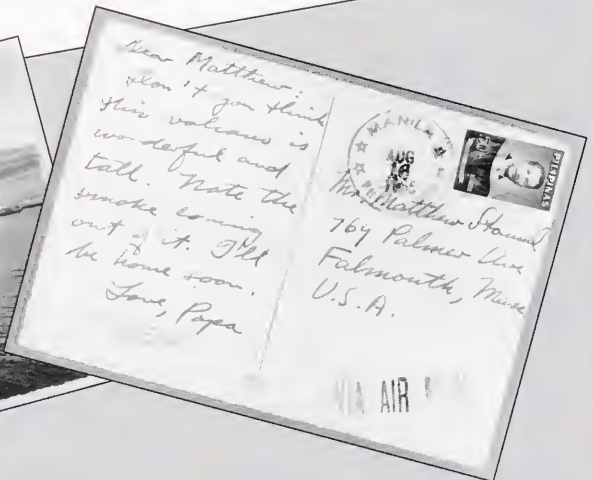 Dear Matthew:
Don't you think
this volcano is
wonderful and
tall. Note the
smoke coming
out of it. I'll
be home soon.
Love, Papa
MANILA
AUG
PILIPINAS
Matthew
769 Palmer Ave
Falmouth, Mass
U.S.A.
VIA AIR